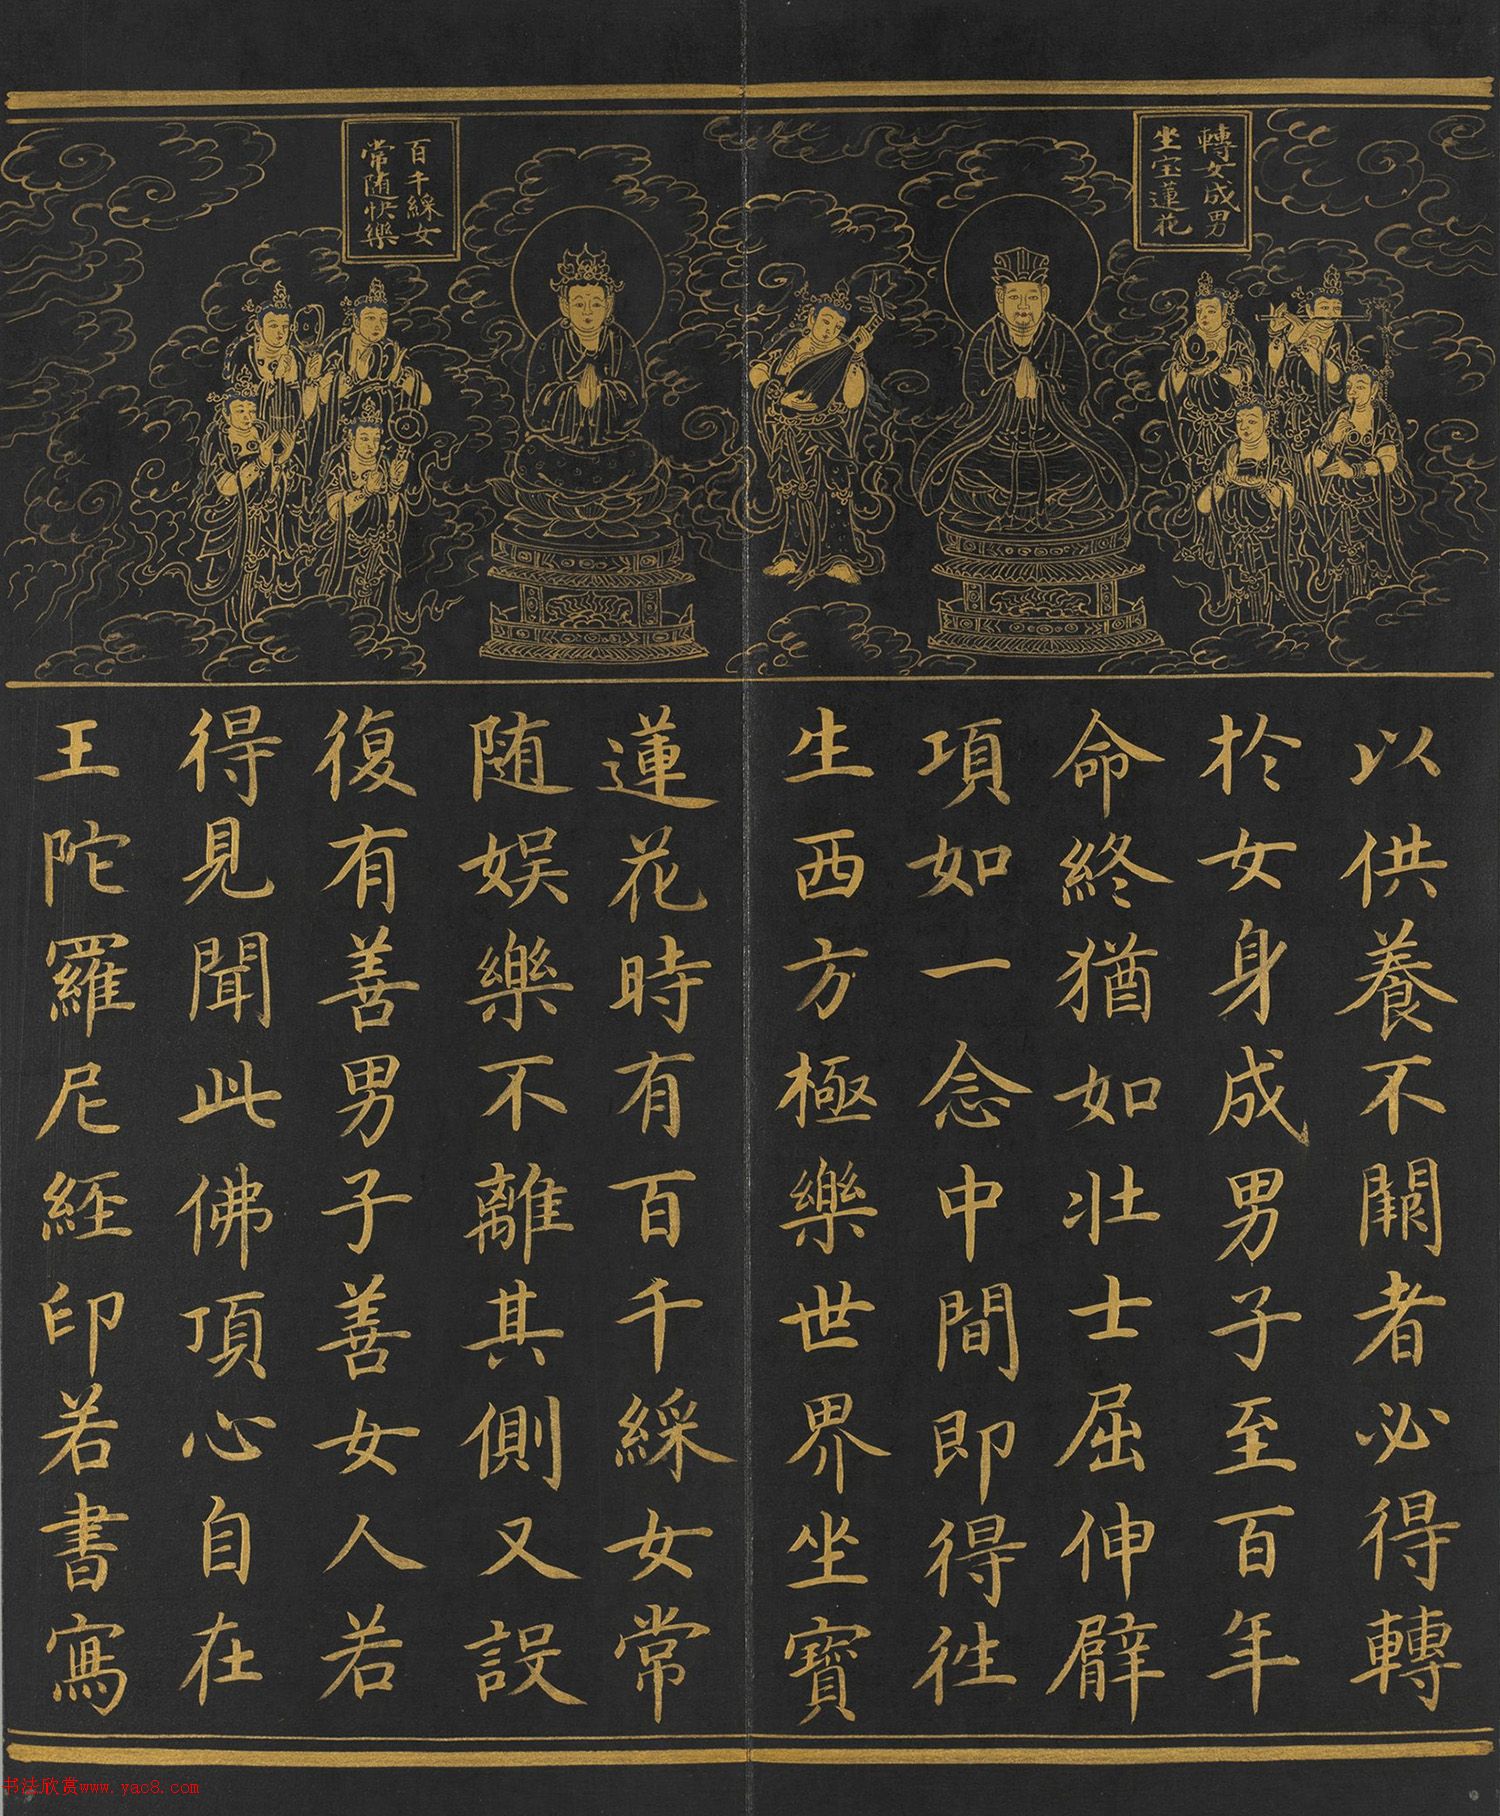 轉女成男
坐宝蓮花
百千綵女
常随快樂
以供養不闕者必得轉
於女身成男子至百年
命終猶如壯士屈伸臂
項如一念中間即得徃
生西方極樂世界坐寶
蓮花時有百千綵女常
随娱樂不離其側又設
復有善男子善女人若
得見聞此佛頂心自在
王陀羅尼経印若書寫
书法欣赏www.yac8.com